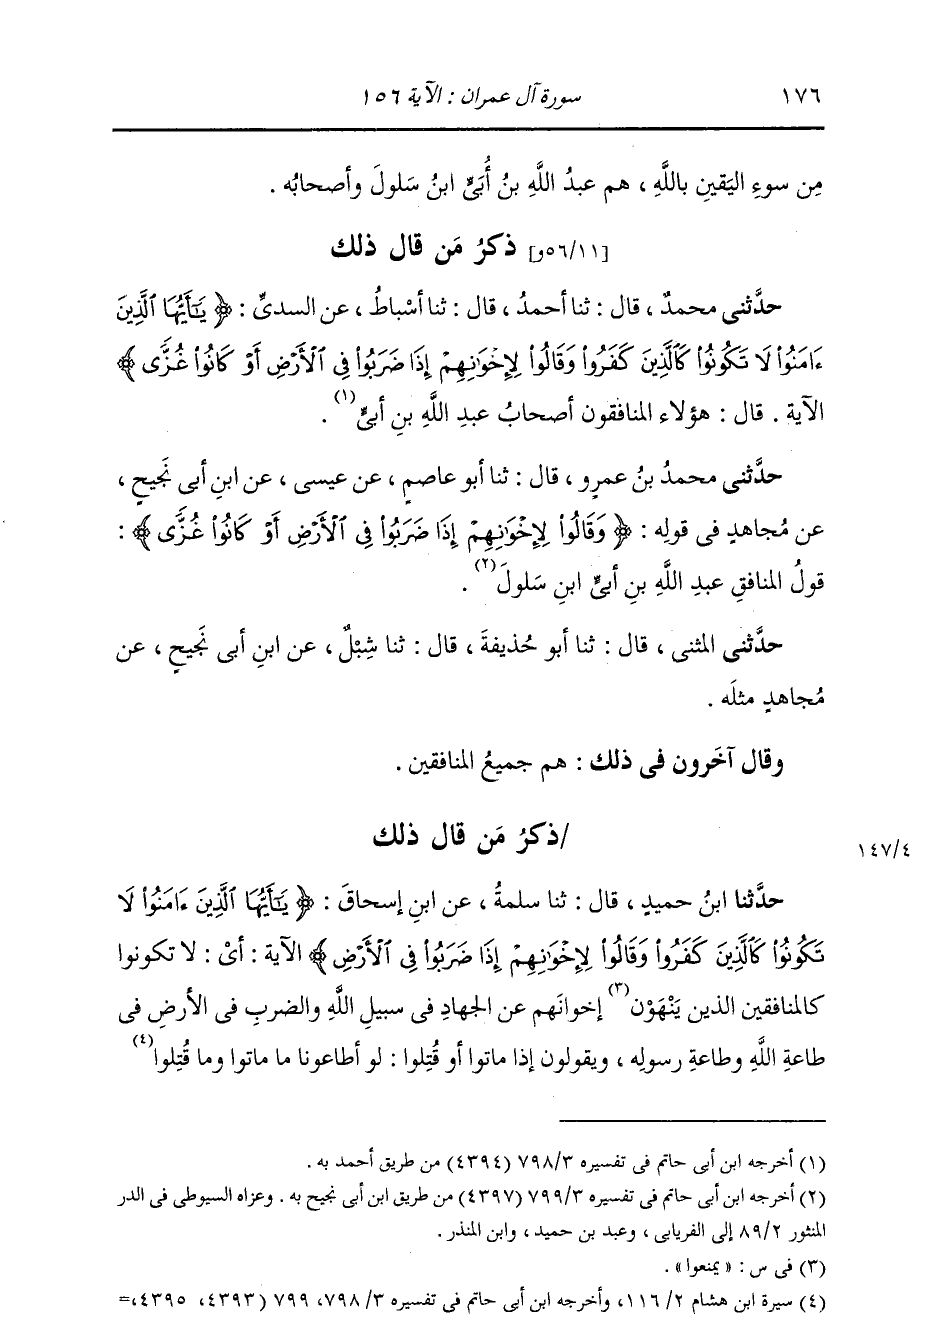 ١٧٦
سورة آل عمران : الآية ١٥٦
مِن سوءِ اليَقينِ باللَّهِ ، هم عبدُ اللَّهِ بنُ أُبَىٍّ ابنُ سَلولَ وأصحابُه .
[١١/٥٦و] ذكرُ مَن قال ذلك
حدَّثنى محمدٌ ، قال : ثنا أحمدُ ، قال : ثنا أسْباطُ ، عن السدىِّ : ﴿ يَٰٓأَيُّهَا ٱلَّذِينَ
ءَامَنُوا۟ لَا تَكُونُوا۟ كَٱلَّذِينَ كَفَرُوا۟ وَقَالُوا۟ لِإِخْوَٰنِهِمْ إِذَا ضَرَبُوا۟ فِى ٱلْأَرْضِ أَوْ كَانُوا۟ غُزًّى ﴾
الآية . قال : هؤلاء المنافقون أصحابُ عبدِ اللَّهِ بنِ أبىٍّ(١) .
حدَّثنى محمدُ بنُ عمرٍو ، قال : ثنا أبو عاصمٍ ، عن عيسى ، عن ابنِ أبى نَجيحٍ ،
عن مُجاهدٍ فى قولِه : ﴿ وَقَالُوا۟ لِإِخْوَٰنِهِمْ إِذَا ضَرَبُوا۟ فِى ٱلْأَرْضِ أَوْ كَانُوا۟ غُزًّى ﴾ :
قولُ المنافقِ عبدِ اللَّهِ بنِ أبىٍّ ابنِ سَلولَ(٢) .
حدَّثنى المثنى ، قال : ثنا أبو حُذيفةَ ، قال : ثنا شِبْلٌ ، عن ابنِ أبى نَجيحٍ ، عن
مُجاهدٍ مثلَه .
وقال آخَرون فى ذلك : هم جميعُ المنافقين .
/ذكرُ مَن قال ذلك
١٤٧/٤
حدَّثنا ابنُ حميدٍ ، قال : ثنا سلمةُ ، عن ابنِ إسحاقَ : ﴿ يَٰٓأَيُّهَا ٱلَّذِينَ ءَامَنُوا۟ لَا
تَكُونُوا۟ كَٱلَّذِينَ كَفَرُوا۟ وَقَالُوا۟ لِإِخْوَٰنِهِمْ إِذَا ضَرَبُوا۟ فِى ٱلْأَرْضِ ﴾ الآية : أىْ : لا تكونوا
كالمنافقين الذين يَنْهَوْن(٣) إخوانَهم عن الجهادِ فى سبيلِ اللَّهِ والضربِ فى الأرضِ فى
طاعةِ اللَّهِ وطاعةِ رسولِه ، ويقولون إذا ماتوا أو قُتِلوا : لو أطاعونا ما ماتوا وما قُتِلوا(٤)
(١) أخرجه ابن أبى حاتم فى تفسيره ٧٩٨/٣ (٤٣٩٤) من طريق أحمد به .
(٢) أخرجه ابن أبى حاتم فى تفسيره ٧٩٩/٣ (٤٣٩٧) من طريق ابن أبى نجيح به . وعزاه السيوطى فى الدر
المنثور ٨٩/٢ إلى الفريابى ، وعبد بن حميد ، وابن المنذر .
(٣) فى س : « يمنعوا » .
(٤) سيرة ابن هشام ١١٦/٢ ، وأخرجه ابن أبى حاتم فى تفسيره ٧٩٨/٣، ٧٩٩ (٤٣٩٣، ٤٣٩٥،=